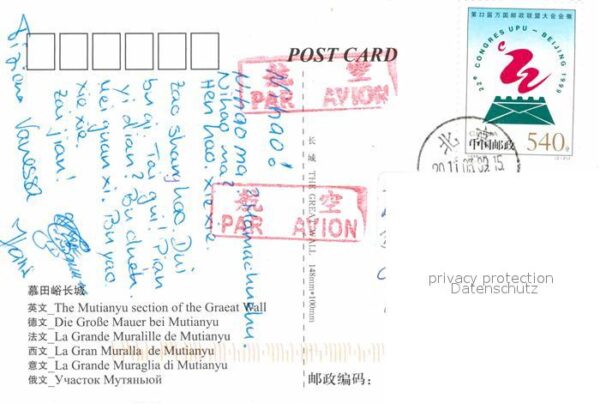 POST CARD
第22届万国邮政联盟大会会徽
22e CONGRES UPU - BEIJING 1999
中国邮政
540
北京
航空
PAR AVION
航空
PAR AVION
Nihao!
Nihao ma
Nihao ma?
Hen hao. xie xie
zao shang hao. Dui
bu qi. Tai gui! Pian
Yi dian? Bu duan.
Mei guan xi. Bu yao.
xie xie.
zai jian!
Vanessa
长城 THE GREAT WALL 148mm×100mm
慕田峪长城
英文_The Mutianyu section of the Graeat Wall
德文_Die Große Mauer bei Mutianyu
法文_La Grande Muralille de Mutianyu
西文_La Gran Muralla de Mutianyu
意文_La Grande Muraglia di Mutianyu
俄文_Участок Мутяньюй
邮政编码：
privacy protection
Datenschutz